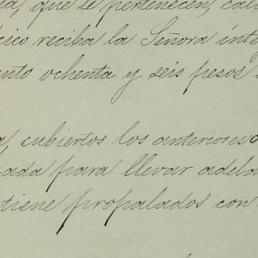 que le pertenecen,
reciba la Señora
ochenta y seis pesos
cubiertos los anteriores
para llevar
tiene propalados con